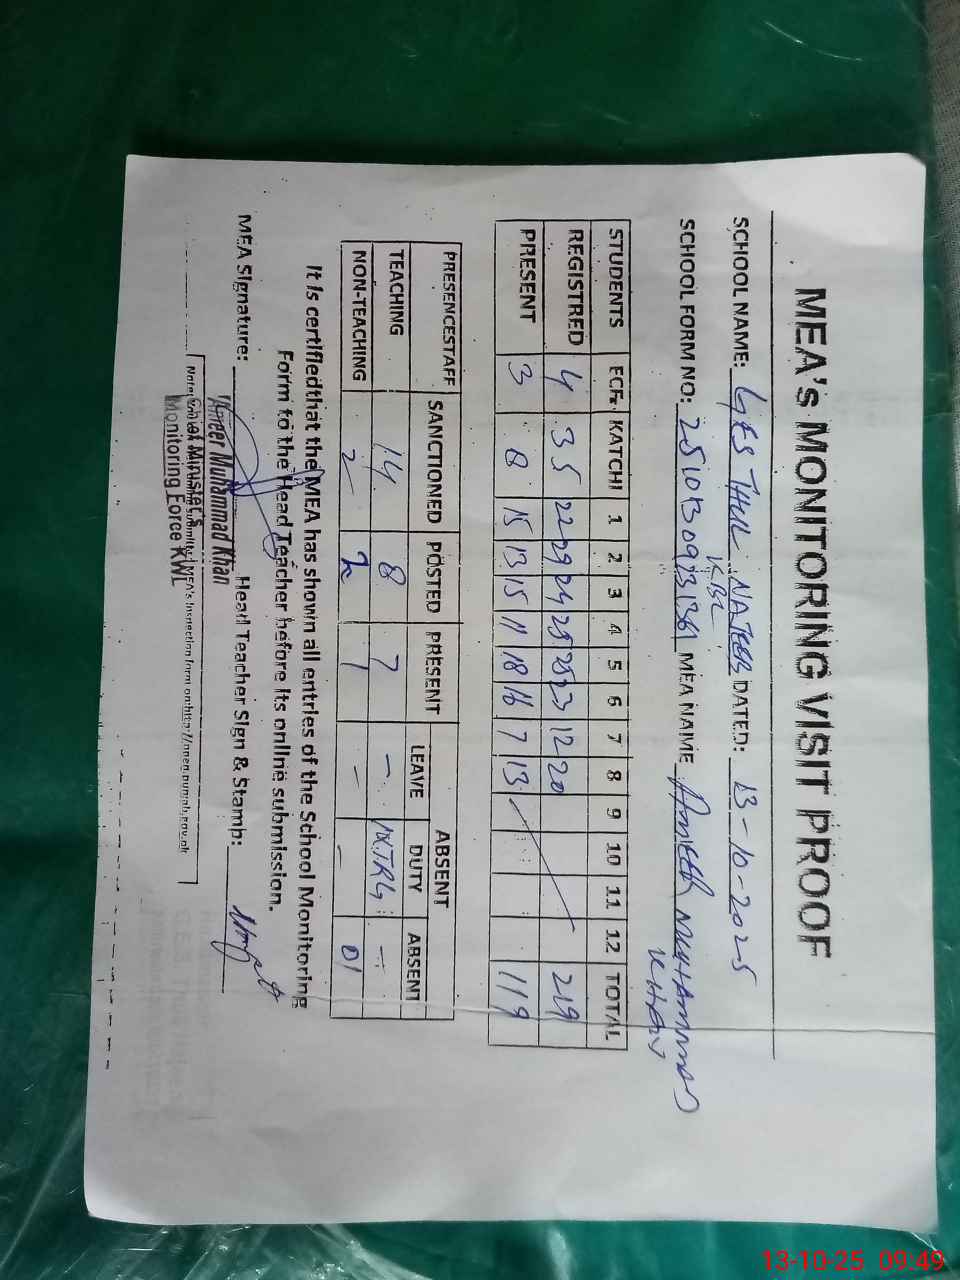 MEA's MONITORING VISIT PROOF
SCHOOL NAME: GES THUL NAJEEB DATED: 13-10-2025
KBL
SCHOOL FORM NO: MEA NAME AMEER MUHAMMAD
KHAN
STUDENTS ECE KATCHI 1 2 3 4 5 6 7 8 9 10 11 12 TOTAL
REGISTRED 4 35 22 29 24 25 25 23 12 20 219
PRESENT 3 8 15 13 15 11 18 16 7 13 119
PRESENCESTAFF SANCTIONED POSTED PRESENT ABSENT
LEAVE DUTY ABSENT
TEACHING 14 8 7 - -
NON-TEACHING 2 2 1 - - 01
It is certifiedthat the MEA has shown all entries of the School Monitoring
Form to the Head Teacher before its online submission.
MEA Signature: Head Teacher Sign & Stamp:
Ameer Muhammad Khan
Chief Minister's
Monitoring Force KWL
13-10-25 09:49